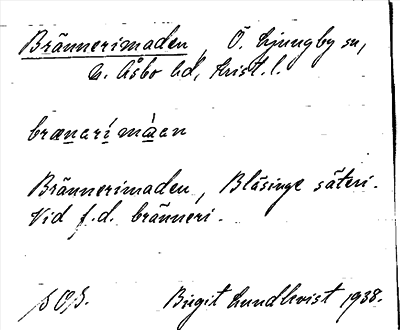 Brännerimaden, Ö. Ljungby sn,
Ö. Åsbo hd, Krist. l.
brænərí màən
Brännerimaden, Blåsinge säteri.
Vid f.d. bränneri.
Birgit Lundkvist 1938.